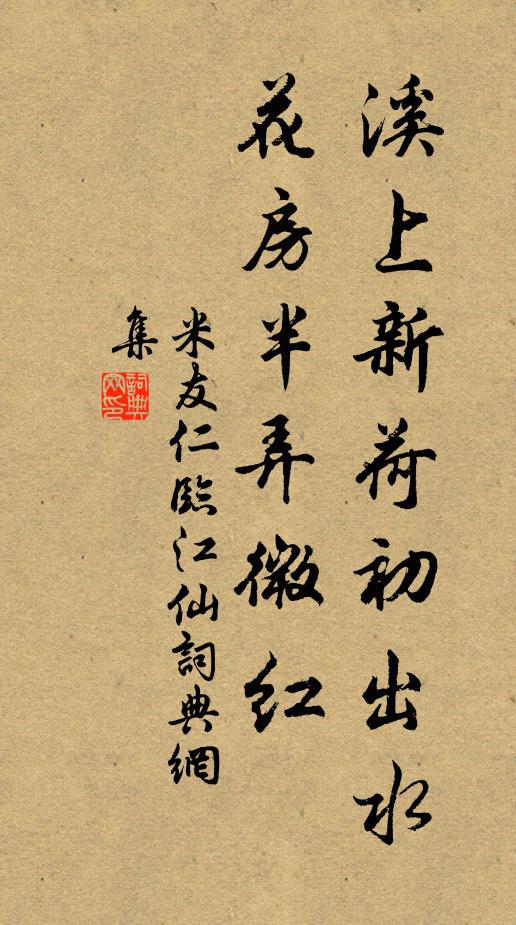 溪上新荷初出水
花房半弄微红
米友仁臨江仙詞典網
集
詞典